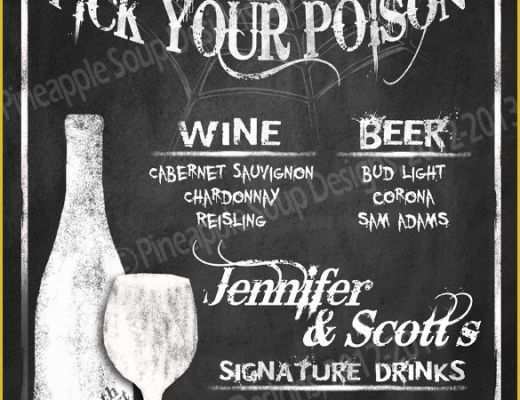 PICK YOUR POISON
WINE
CABERNET SAUVIGNON
CHARDONNAY
REISLING
BEER
BUD LIGHT
CORONA
SAM ADAMS
Jennifer
& Scott's
SIGNATURE DRINKS
© Pineapple Soup Designs 2012-2013